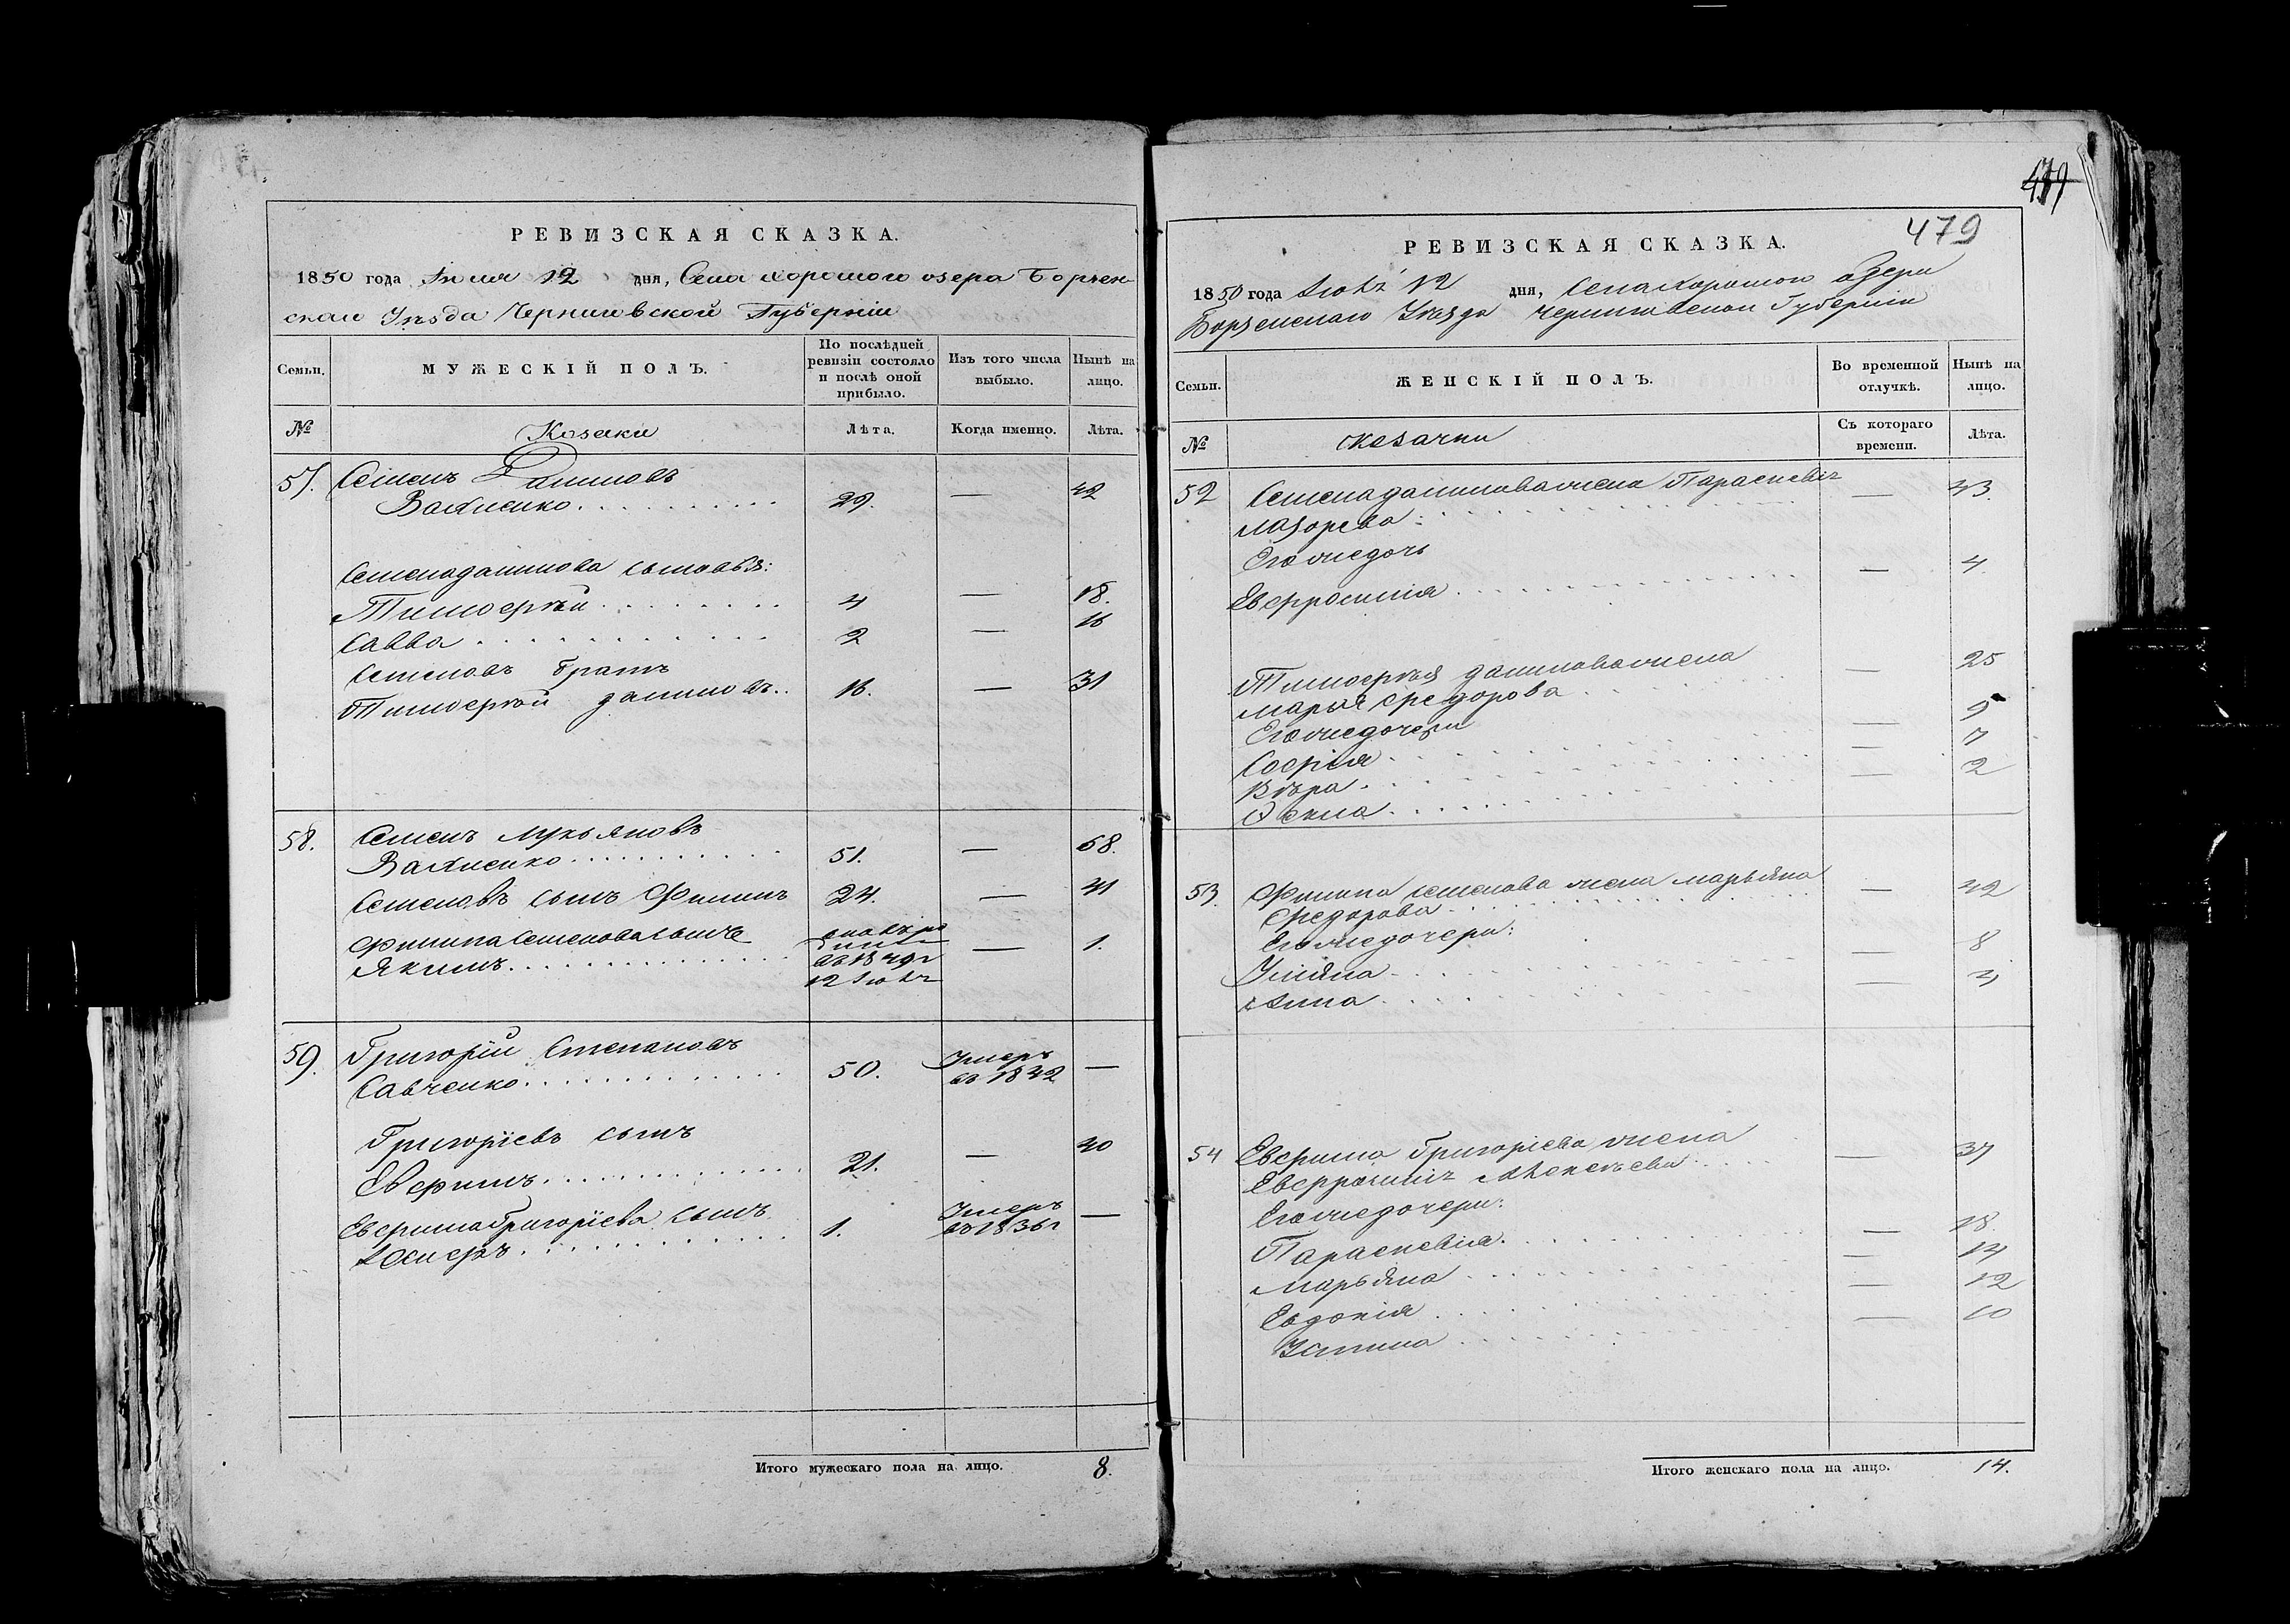 РЕВИЗСКАЯ СКАЗКА.
1850 года Іюля 12 дня, Села хорошого озера Борзен-
скаго Уѣзда Черниговской Губерніи
Семьи. МУЖЕСКІЙ ПОЛЪ. По послѣдней ревизіи состояло и послѣ оной прибыло. Изъ того числа выбыло. Нынѣ на лицо.
№ Козаки Лѣта. Когда именно. Лѣта.
57. Семенъ Даниловъ
Вахненко 29. — 42
Семена данилова сыновья:
Тимофѣй 4 — 18.
Савва 2 — 16
Семеновъ братъ
Тимофѣй даниловъ 18. — 31
58. Семенъ Лукьяновъ
Вахненко 51. — 68.
Семеновъ сынъ Филипъ 24. — 41
Филипа Семенова сынъ
Якимъ — 1.
въ 1849г
12 Іюля
59. Григорій Степановъ
Савченко 50. Умеръ въ 1842 —
Григоріевъ сынъ
Евфимъ 21. — 40
Евфима Григоріева сынъ 1. Умеръ въ 1836г —
Итого мужескаго пола на лицо. 8.
479
479
РЕВИЗСКАЯ СКАЗКА.
1850 года Іюля 12 дня, Села хорошого озера
Борзенскаго Уѣзда Черниговской Губерніи
Семьи. ЖЕНСКІЙ ПОЛЪ. Во временной отлучкѣ. Нынѣ на лицо.
№ козачки Съ котораго времени. Лѣта.
52 Семена данилова жена Параскевія — 43.
лазорева
Его же дочь
Евфросинія — 4
Тимофѣя данилова жена
марья федорова — 25
Его же дочери
Софія — 9
Вѣра — 7
Фекла — 2
53. Филипа семенова жена марьяна — 42
федорова
Его же дочери:
Ульяна — 8
Анна — 3
54 Евфима Григоріева жена — 37
Евфросинія
Его же дочери:
Параскевія — 18
Марьяна — 14
Евдокія — 12
Устина — 10
Итого женскаго пола на лицо. 14.